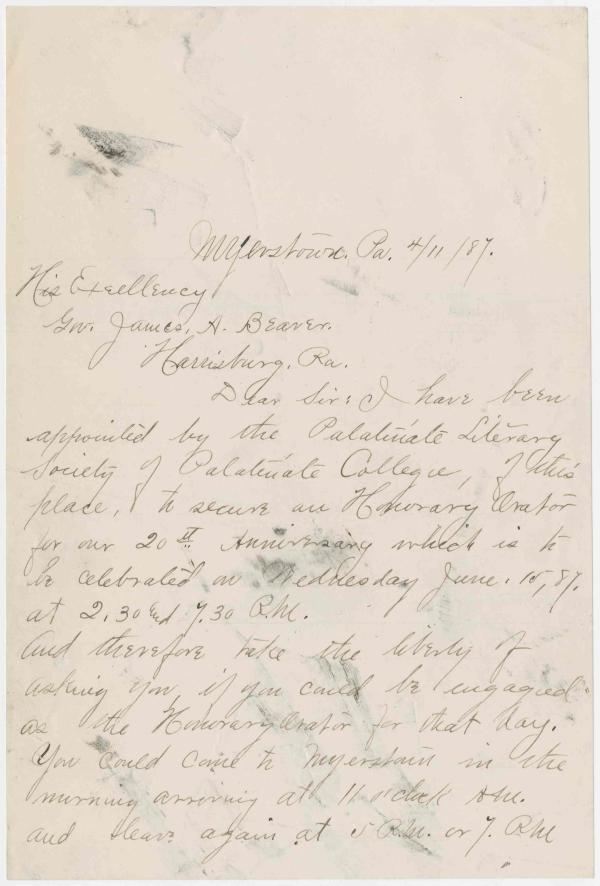 Myerstown. Pa. 4/11/87.
His Excellency
Gov. James, A. Beaver.
Harrisburg, Pa.
Dear Sir: I have been
appointed by the Palatinate Literary
Society of Palatinate College, of this
place, to secure an Honorary Orator
for our 20th Anniversary which is to
be celebrated on Wednesday June. 15, 87.
at 2.30 and 7.30 P.M.
And therefore take the liberty of
asking you, if you could be engaged
as the Honorary Orator for that day.
You could come to Myerstown in the
morning arriving at 11 o'clock A.M.
and leave again at 5 P.M. or 7. P.M